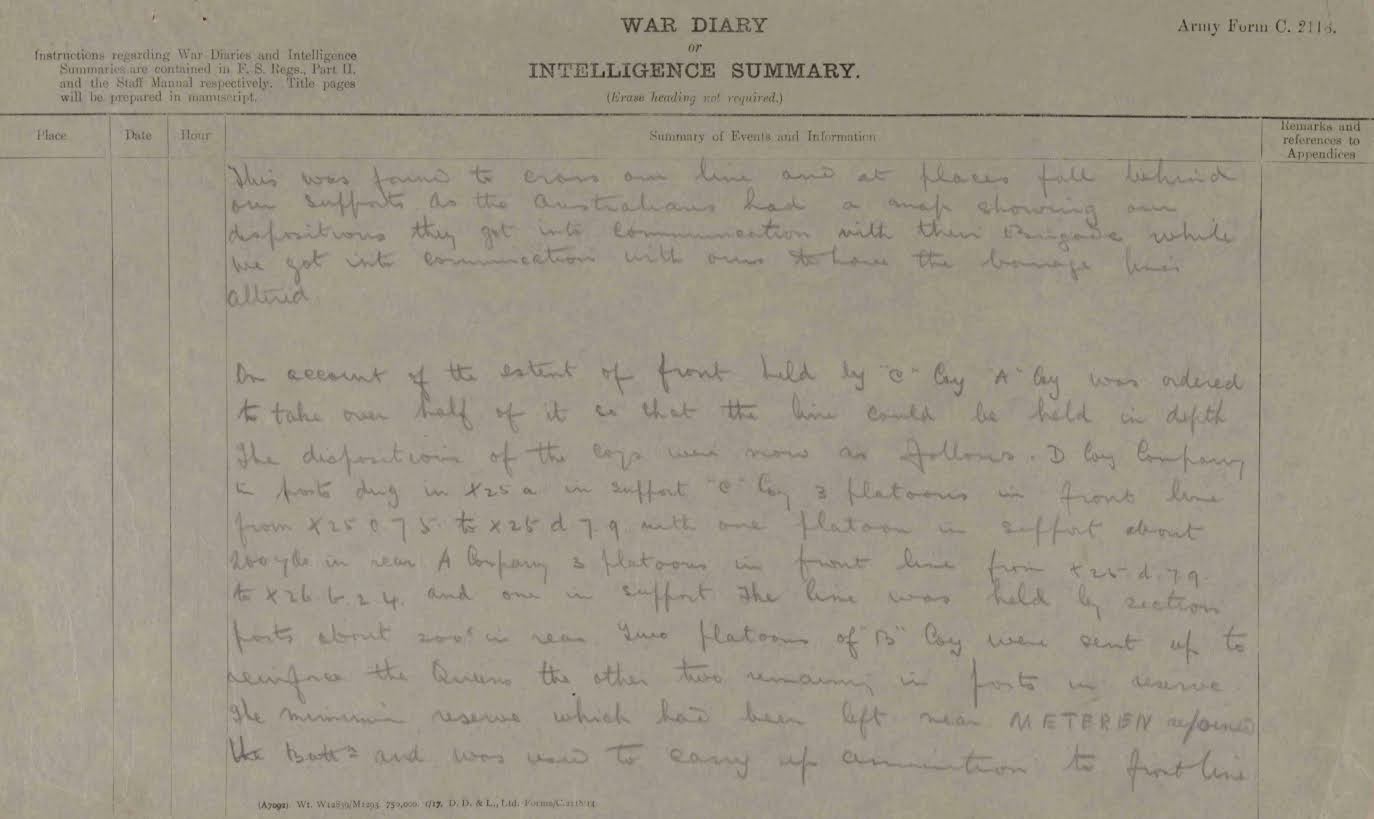 WAR DIARY
or
INTELLIGENCE SUMMARY.
(Erase heading not required.)
Army Form C. 2118.
Instructions regarding War Diaries and Intelligence
Summaries are contained in F. S. Regs., Part II.
and the Staff Manual respectively. Title pages
will be prepared in manuscript.
Place
Date
Hour
Summary of Events and Information
Remarks and
references to
Appendices
This was found to cross our line and at places fall behind
our supports As the Australians had a map showing our
dispositions they got into communication with their Brigade while
we got into communication with ours to have the barrage lines
altered
On account of the extent of front held by "C" Coy "A" Coy was ordered
to take over half of it so that the line could be held in depth
The dispositions of the coys were now as follows. D Coy Company
in posts dug in X25 a in support "C" Coy 3 platoons in front line
from X25 c 7 5 to X25 d 7.9 with one platoon in support about
200 yds in rear A Company 3 platoons in front line from X25.d.79.
to X26.b.2.4. and one in support The line was held by section
posts about 200x in rear. Two platoons of "B" Coy were sent up to
reinforce the Queens the other two remaining in posts in reserve
The minimum reserve which had been left near METEREN rejoined
the Battn and was used to carry up ammunition to front line
(A7092). Wt. W12839/M1293. 750,000. 1/17. D. D. & L., Ltd. Forms/C.2118/14.